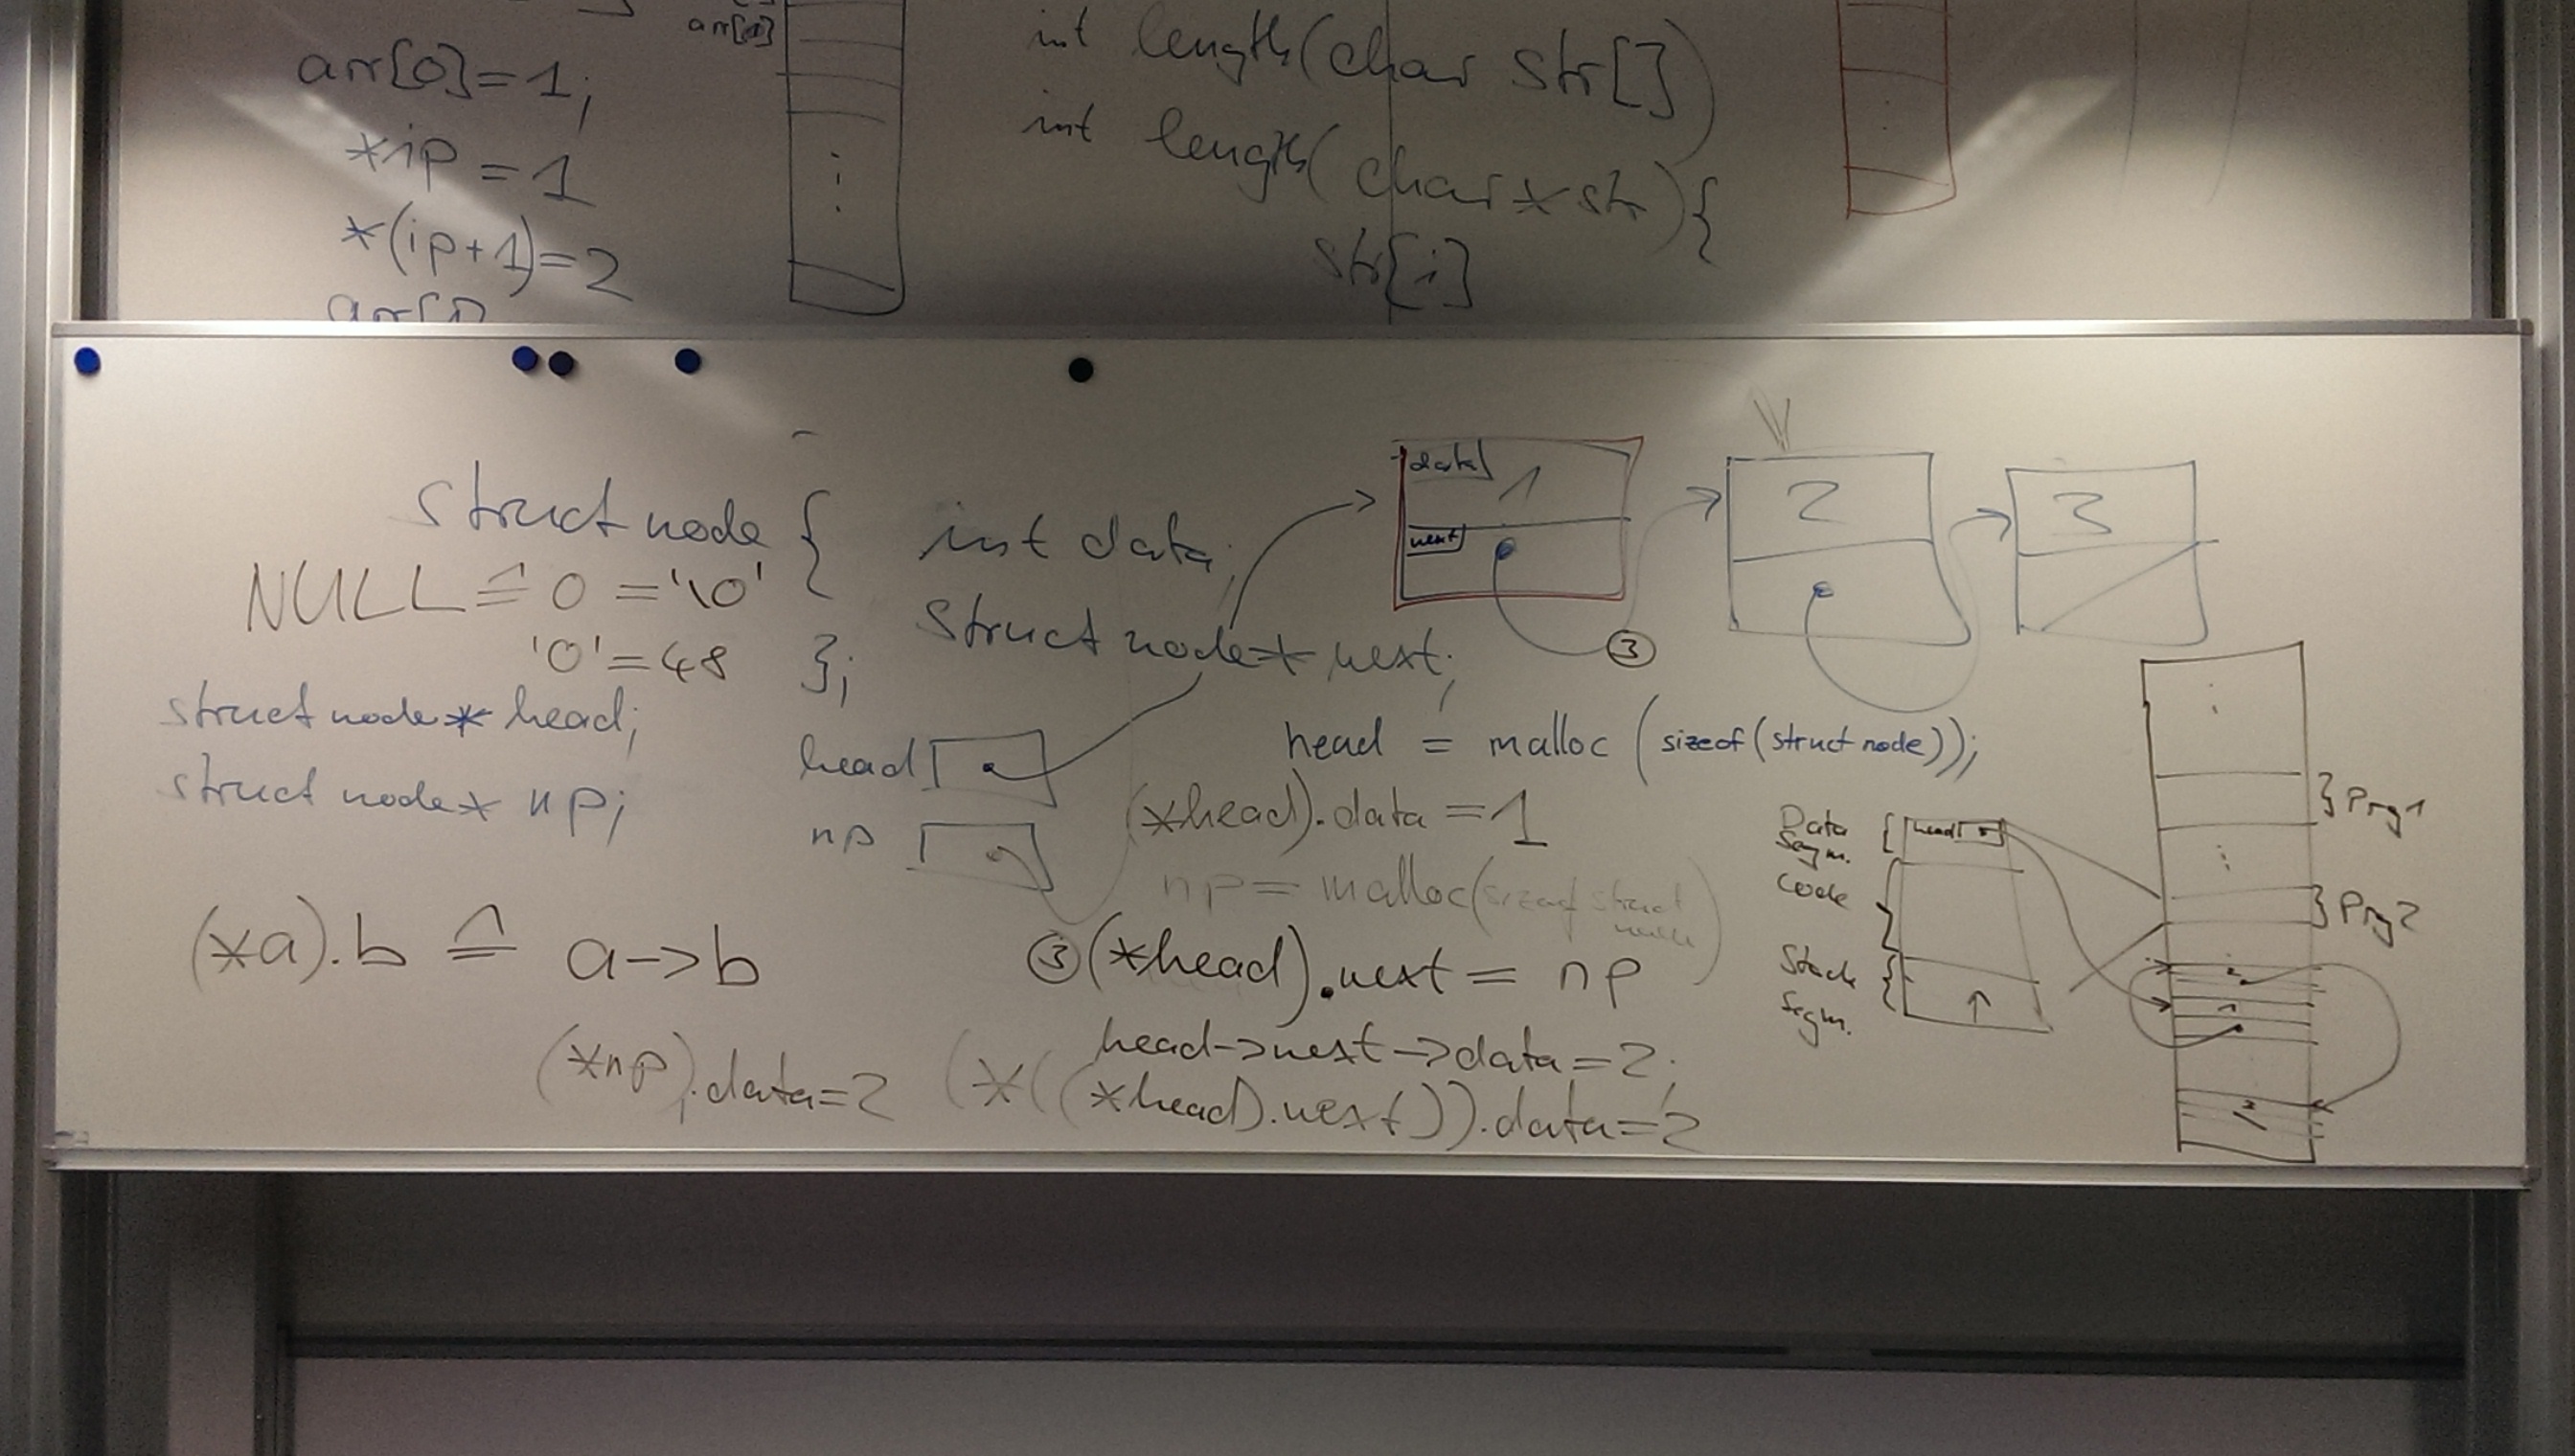 arr[0]
arr[0]=1;
*ip = 1
*(ip+1)=2
arr[1]
int length(char str[])
int length(char * str){
str[i]
struct node {
int data;
struct node* next;
};
NULL ≙ 0 = '\0'
'0'=48
struct node* head;
struct node* np;
head
np
data
1
next
2
3
③
head = malloc (sizeof(struct node));
(*head).data = 1
np = malloc(sizeof struct node)
③ (*head).next = np
head->next->data=2;
(*((*head).next)).data=2
(*a).b ≙ a->b
(*np).data=2
Data
Segm.
Code
Stack
Segm.
head
Prg1
Prg2
2
1